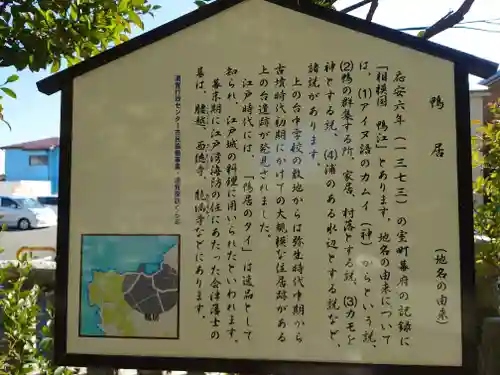 鴨居
（地名の由来）
応安六年（一三七三）の室町幕府の記録に
「相模国 鴨江」とあります。地名の由来について
は、(1)アイヌ語のカムイ（神）からという説、
(2)鴨の群集する所、家居、村落とする説、(3)カモを
神とする説、(4)浦のある水辺とする説など、
諸説があります。
上の台中学校の敷地からは弥生時代中期から
古墳時代初期にかけての大規模な住居跡がある
上の台遺跡が発見されました。
江戸時代には、「鴨居のタイ」は逸品として
知られ、江戸城の料理に用いられたといわれます。
幕末期に江戸湾海防の任にあたった会津藩士の
墓は、腰越、西徳寺、能満寺などにあります。
浦賀行政センター市民協働事業・浦賀探訪くらぶ
鴨居